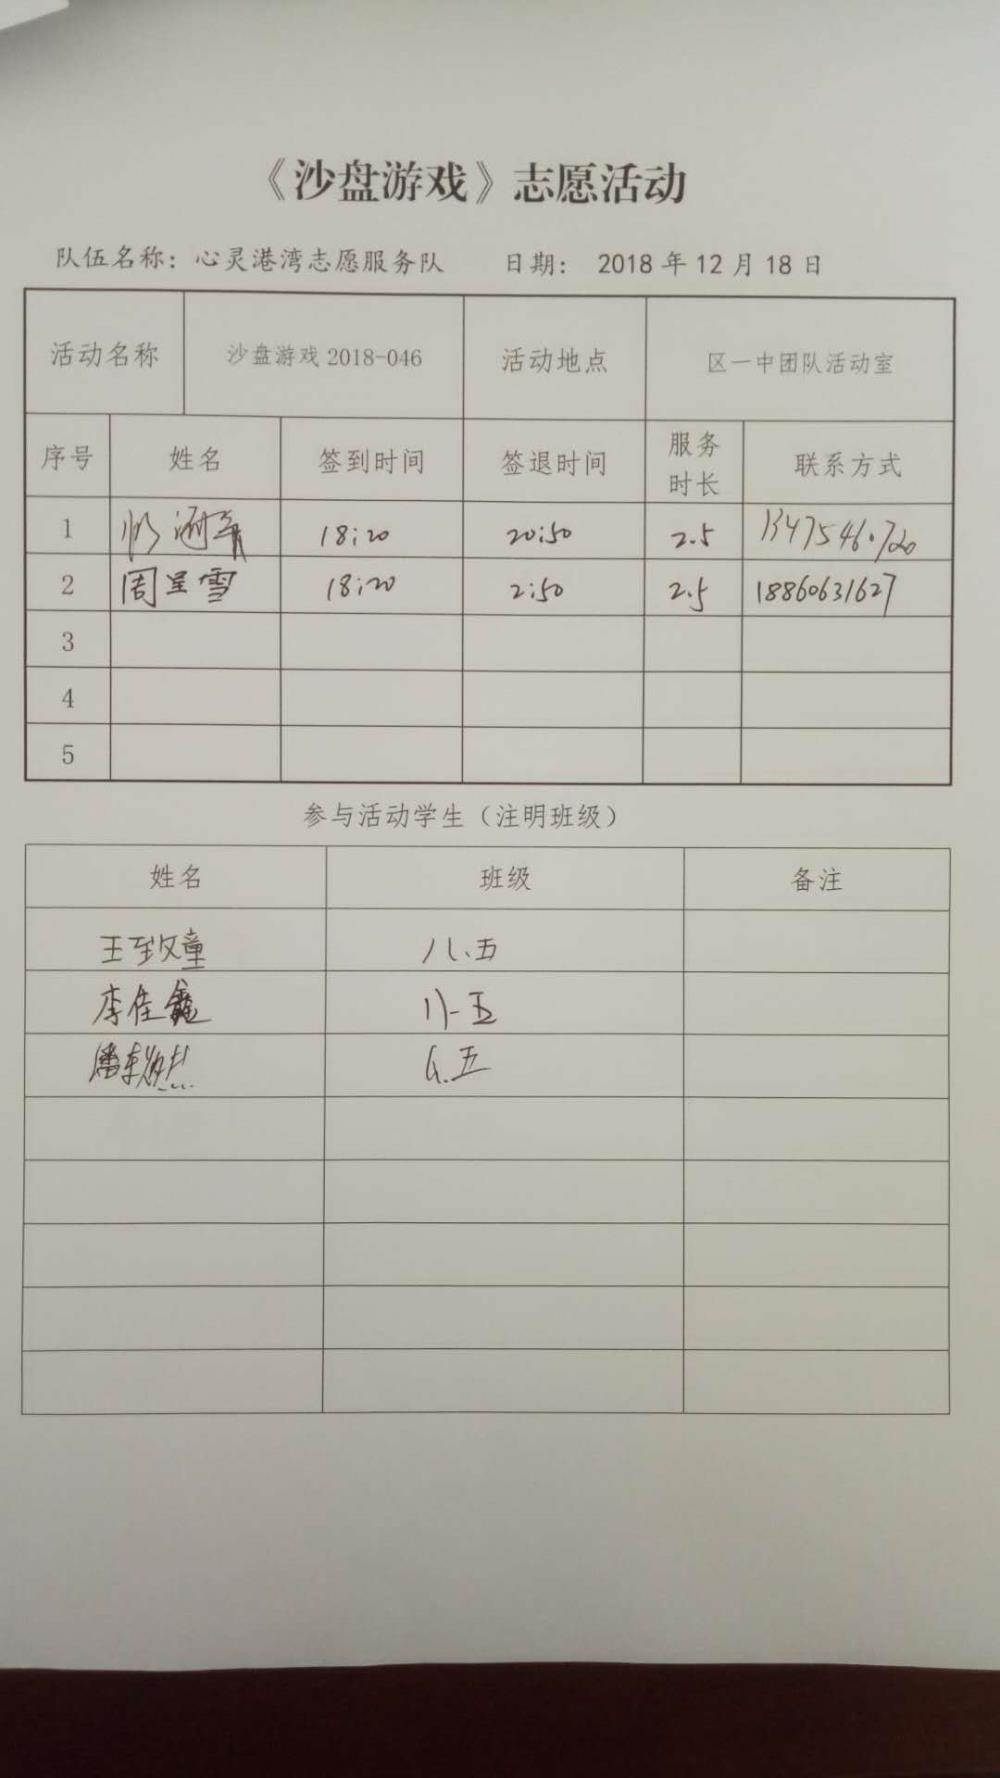 《沙盘游戏》志愿活动
队伍名称：心灵港湾志愿服务队 日期： 2018 年 12 月 18 日
活动名称 沙盘游戏 2018-046 活动地点 区一中团队活动室
序号 姓名 签到时间 签退时间 服务时长 联系方式
1 18:20 20:50 2.5
2 周呈雪 18:20 2:50 2.5 18860631627
3
4
5
参与活动学生（注明班级）
姓名 班级 备注
王致童 八.五
李佳鑫 八-五
五